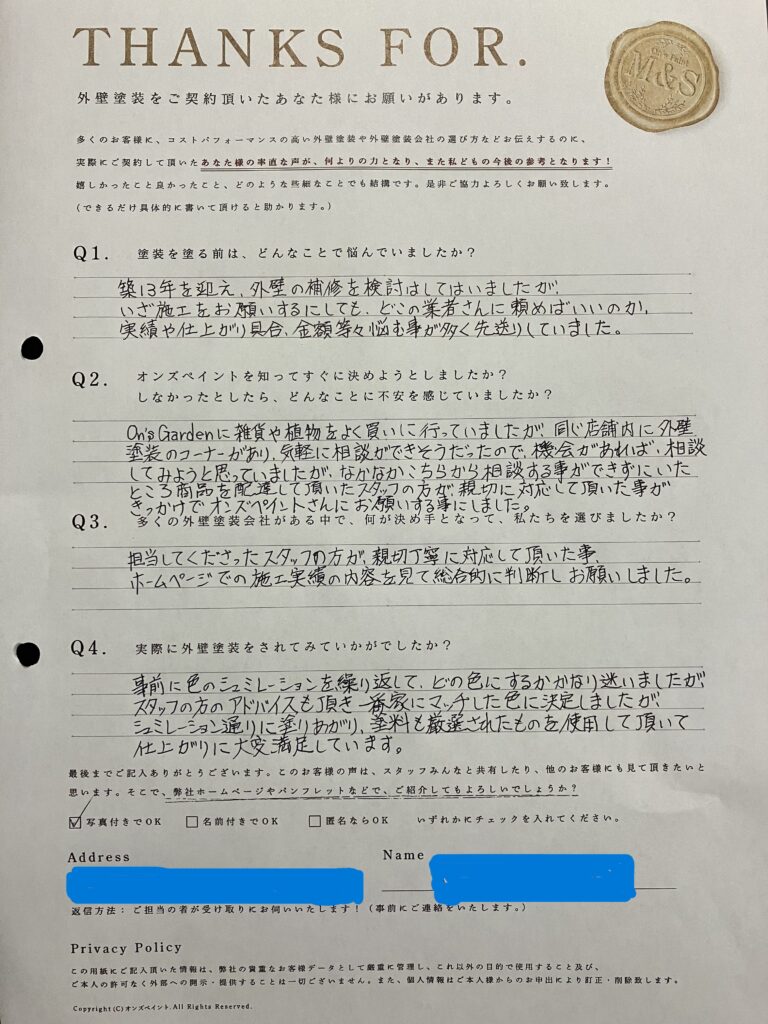 THANKS FOR.
On's Paint
M&S
外壁塗装をご契約頂いたあなた様にお願いがあります。
多くのお客様に、コストパフォーマンスの高い外壁塗装や外壁塗装会社の選び方などお伝えするのに、
実際にご契約して頂いたあなた様の率直な声が、何よりの力となり、また私どもの今後の参考となります！
嬉しかったこと良かったこと、どのような些細なことでも結構です。是非ご協力よろしくお願い致します。
（できるだけ具体的に書いて頂けると助かります。）
Q1. 塗装を塗る前は、どんなことで悩んでいましたか？
築13年を迎え、外壁の補修を検討はしてはいましたが、
いざ施工をお願いするにしても、どこの業者さんに頼めばいいのか、
実績や仕上がり具合、金額等々悩む事が多く先送りしていました。
Q2. オンズペイントを知ってすぐに決めようとしましたか？
しなかったとしたら、どんなことに不安を感じていましたか？
On's Gardenに雑貨や植物をよく買いに行っていましたが、同じ店舗内に外壁
塗装のコーナーがあり、気軽に相談ができそうだったので、機会があれば、相談
してみようと思っていましたが、なかなかこちらから相談する事ができずにいた
ところ商品を配達して頂いたスタッフの方が親切に対応して頂いた事が
きっかけでオンズペイントさんにお願いする事にしました。
Q3. 多くの外壁塗装会社がある中で、何が決め手となって、私たちを選びましたか？
担当してくださったスタッフの方が、親切丁寧に対応して頂いた事、
ホームページでの施工実績の内容を見て総合的に判断しお願いしました。
Q4. 実際に外壁塗装をされてみていかがでしたか？
事前に色のシュミレーションを繰り返して、どの色にするかかなり迷いましたが、
スタッフの方のアドバイスも頂き一番家にマッチした色に決定しましたが、
シュミレーション通りに塗りあがり、塗料も厳選されたものを使用して頂いて
仕上がりに大変満足しています。
最後までご記入ありがとうございます。このお客様の声は、スタッフみんなと共有したり、他のお客様にも見て頂きたいと
思います。そこで、弊社ホームページやパンフレットなどで、ご紹介してもよろしいでしょうか？
☑写真付きでOK □名前付きでOK □匿名ならOK いずれかにチェックを入れてください。
Address Name
返信方法：ご担当の者が受け取りにお伺いいたします！（事前にご連絡をいたします。）
Privacy Policy
この用紙にご記入頂いた情報は、弊社の貴重なお客様データとして厳重に管理し、これ以外の目的で使用すること及び、
ご本人の許可なく外部への開示・提供することは一切ございません。また、個人情報はご本人様からのお申出により訂正・削除致します。
Copyright (C) オンズペイント.All Rights Reserved.